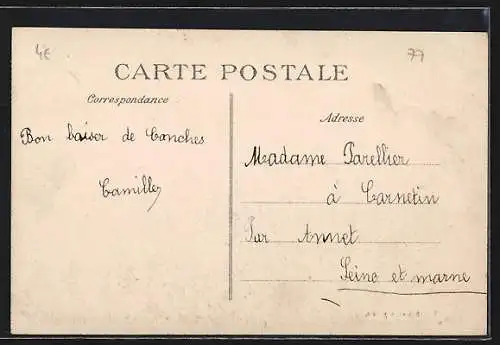 4€
77
CARTE POSTALE
Correspondance
Adresse
Bon baiser de Conches
Camille
Madame Parellier
à Carnetin
Par Annet
Seine et marne